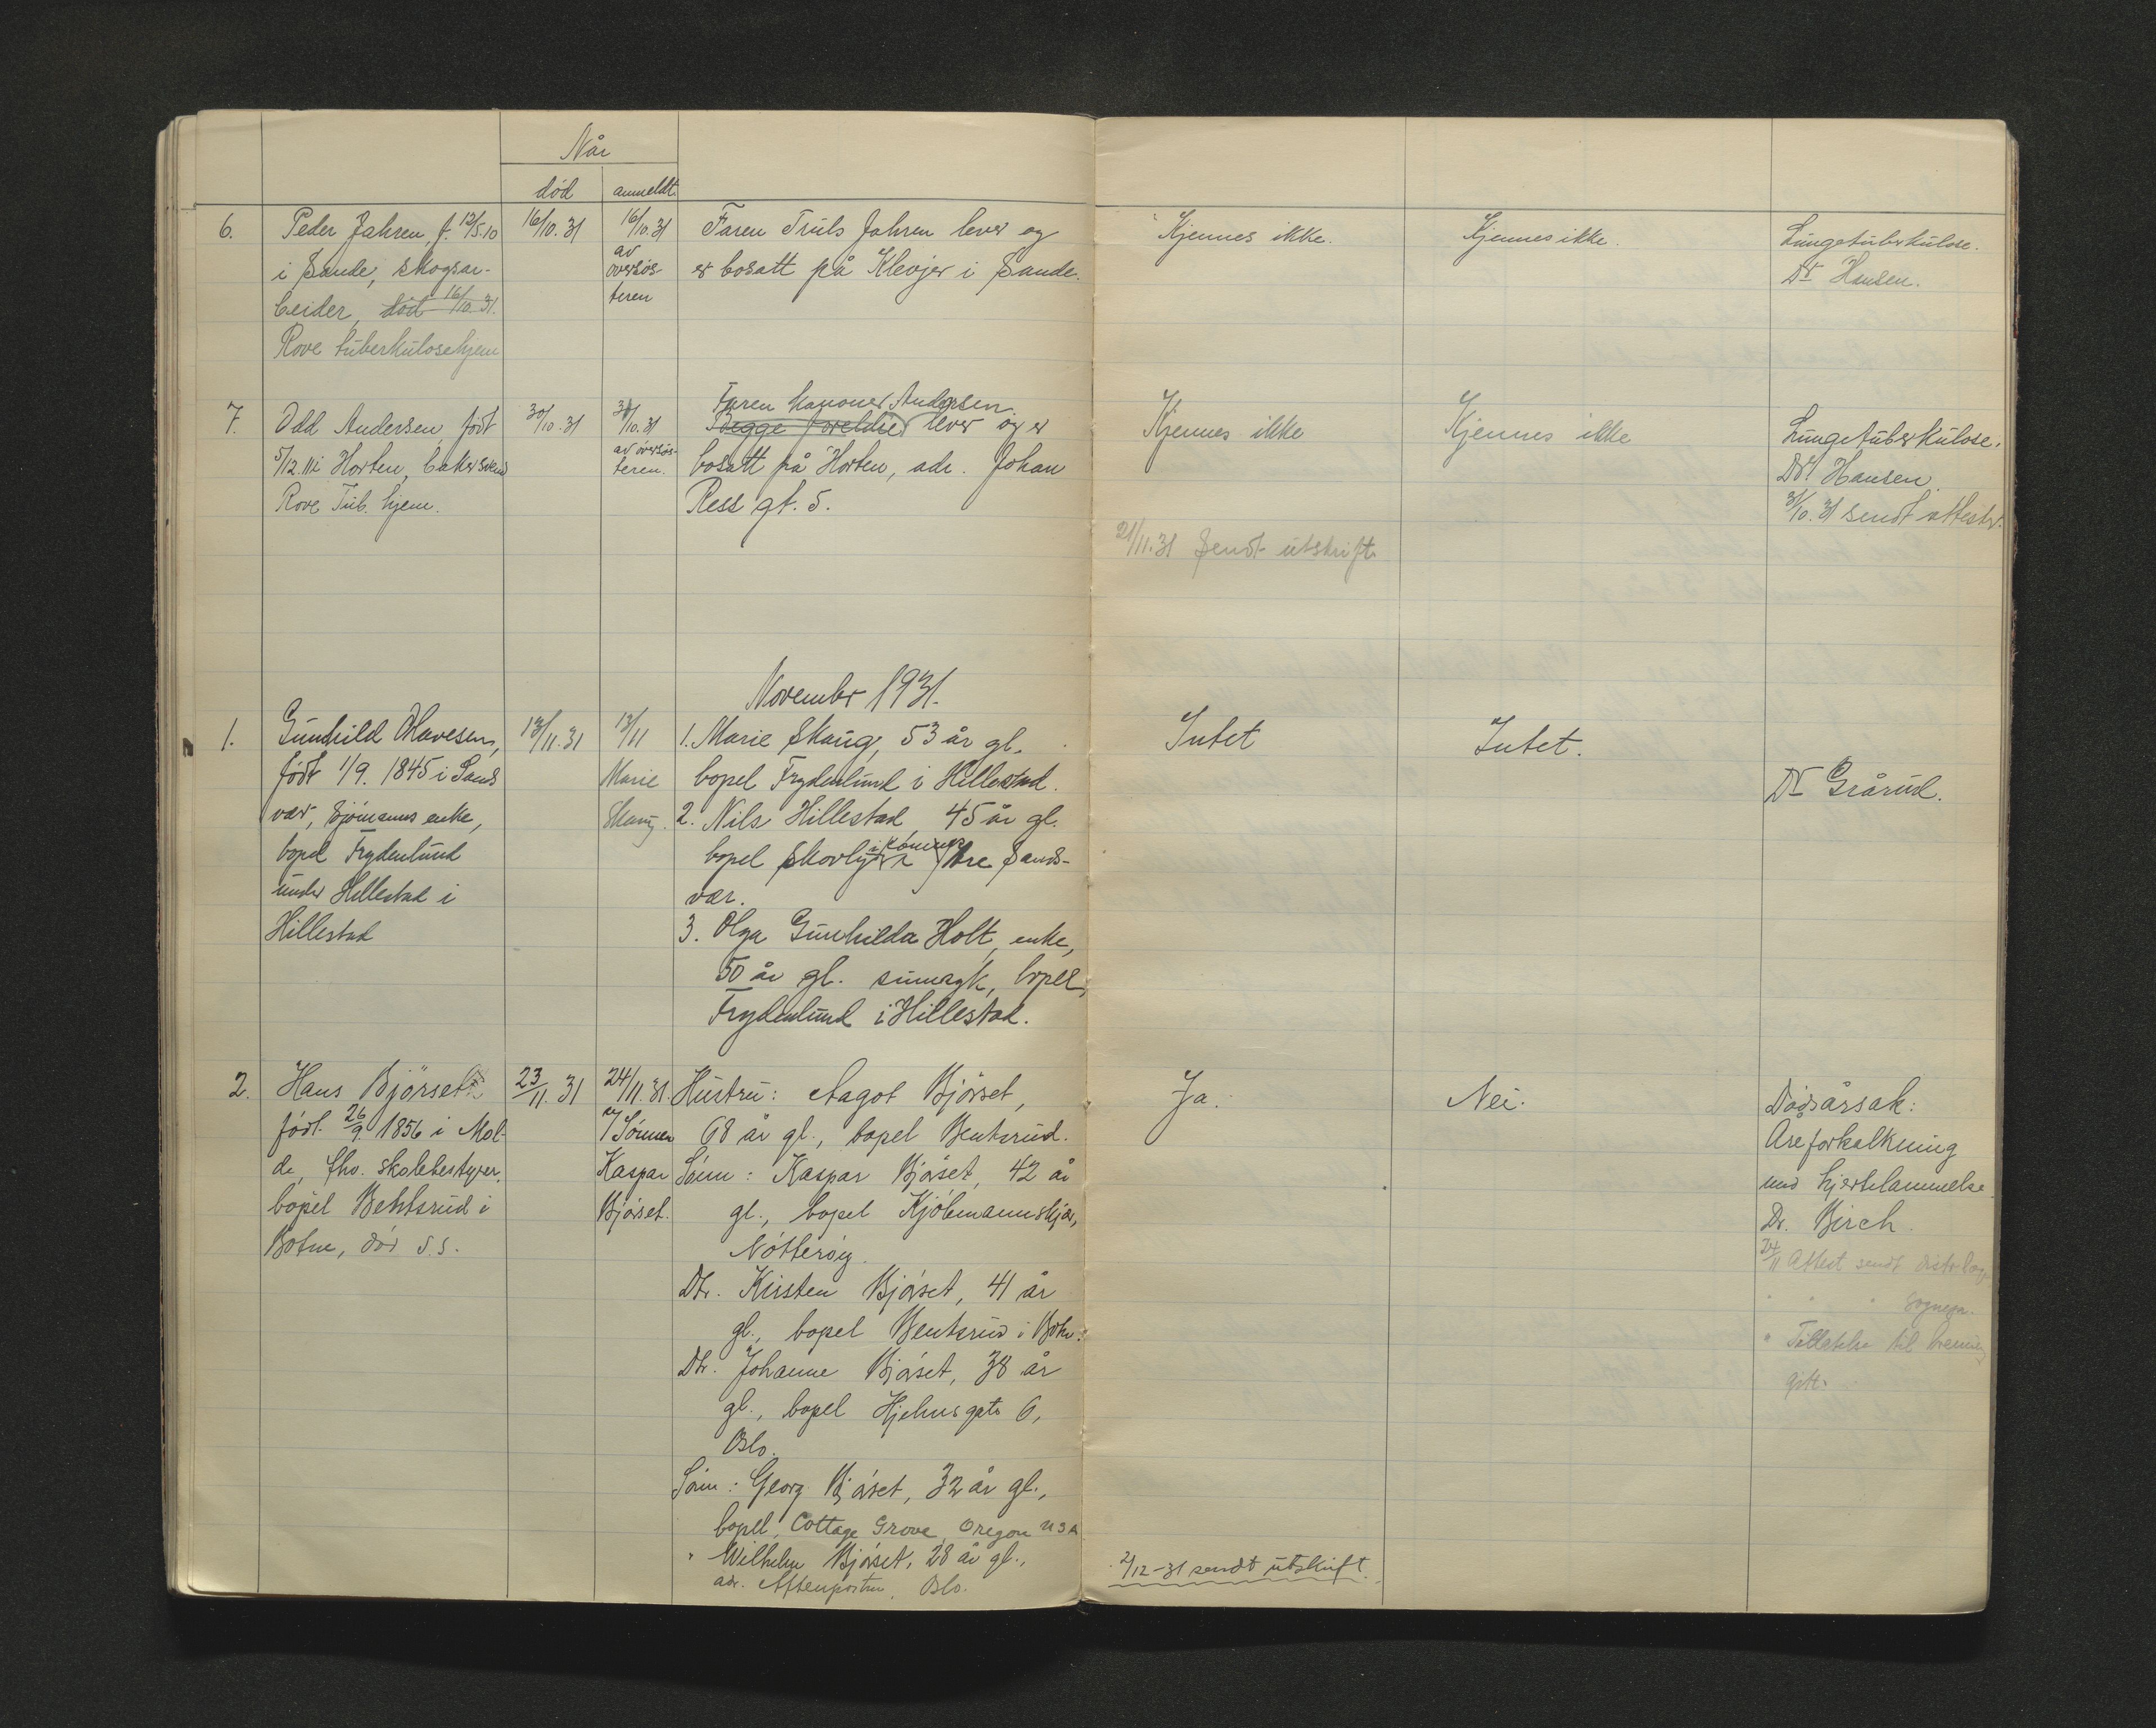 Når
död
anmeldt.
6.
Peder Jahren, f. 12/5.10
i Sande, skogsar-
beider, död 16/10.31.
Rove tuberkulosehjem
16/10.31
16/10.31
av
oversös
teren
Faren Truls Jahren lever og
er bosatt på Klevjer i Sande.
Kjennes ikke.
Kjennes ikke.
Lungetuberkulose.
Dr Hansen.
7.
Odd Andersen, födt
5/12.11 i Horten, bakersvend
Rove Tub. hjem.
30/10.31
31/10.31
av oversös-
teren.
Faren kanoner Andersen
Begge foreldre lever og er
bosatt på Horten, adr. Johan
Ress gt. 5.
Kjennes ikke
21/11.31 Sendt utskrift.
Kjennes ikke
Lungetuberkulose.
Dr Hansen.
31/10.31 sendt attester.
November 1931.
1.
Gunhild Olavesen,
födt 1/9. 1845 i Sands
vær, sjömanns enke,
bopel Frydenlund
under Hillestad i
Hillestad
13/11.31
13/11
Marie
Skaug.
1. Marie Skaug, 53 år gl.
bopel Frydenlund i Hillestad.
2. Nils Hillestad, 45 år gl.
bopel Skovly i Komnes Ytre Sands-
vær.
3. Olga Gunhilda Holt, enke,
50 år gl. bopel,
Frydenlund i Hillestad.
Intet
Intet.
Dr Grårud.
2.
Hans Björset
födt 26/9 1856 i Mol-
de, fhv. skolebestyrer,
bopel Bentsrud i
Botne, död s.s.
23/11.31
24/11.31.
Sönnen
Kaspar
Björset.
Hustru: Aagot Björset,
68 år gl., bopel Bentsrud.
Sönn: Kaspar Björset, 42 år
gl., bopel Kjöbmannskjær,
Nötteröy.
Dtr. Kirsten Björset, 41 år
gl., bopel Bentsrud i Botne.
Dtr. Johanne Björset, 38 år
gl., bopel Hjelmsgate 6,
Oslo.
Sönn: Georg Björset, 32 år gl.,
bopel, Cottage Grove, Oregon USA
" Wilhelm Björset, 28 år gl.,
adr. Aftenposten, Oslo.
Ja.
2/12-31 sendt utskrift.
Nei.
Dödsårsak:
Åreforkalkning
med hjertelammelse.
Dr. Birch.
24/11 Attest sendt distr.læge
" " " Sognepr.
" Tillatelse til brenning
gitt.